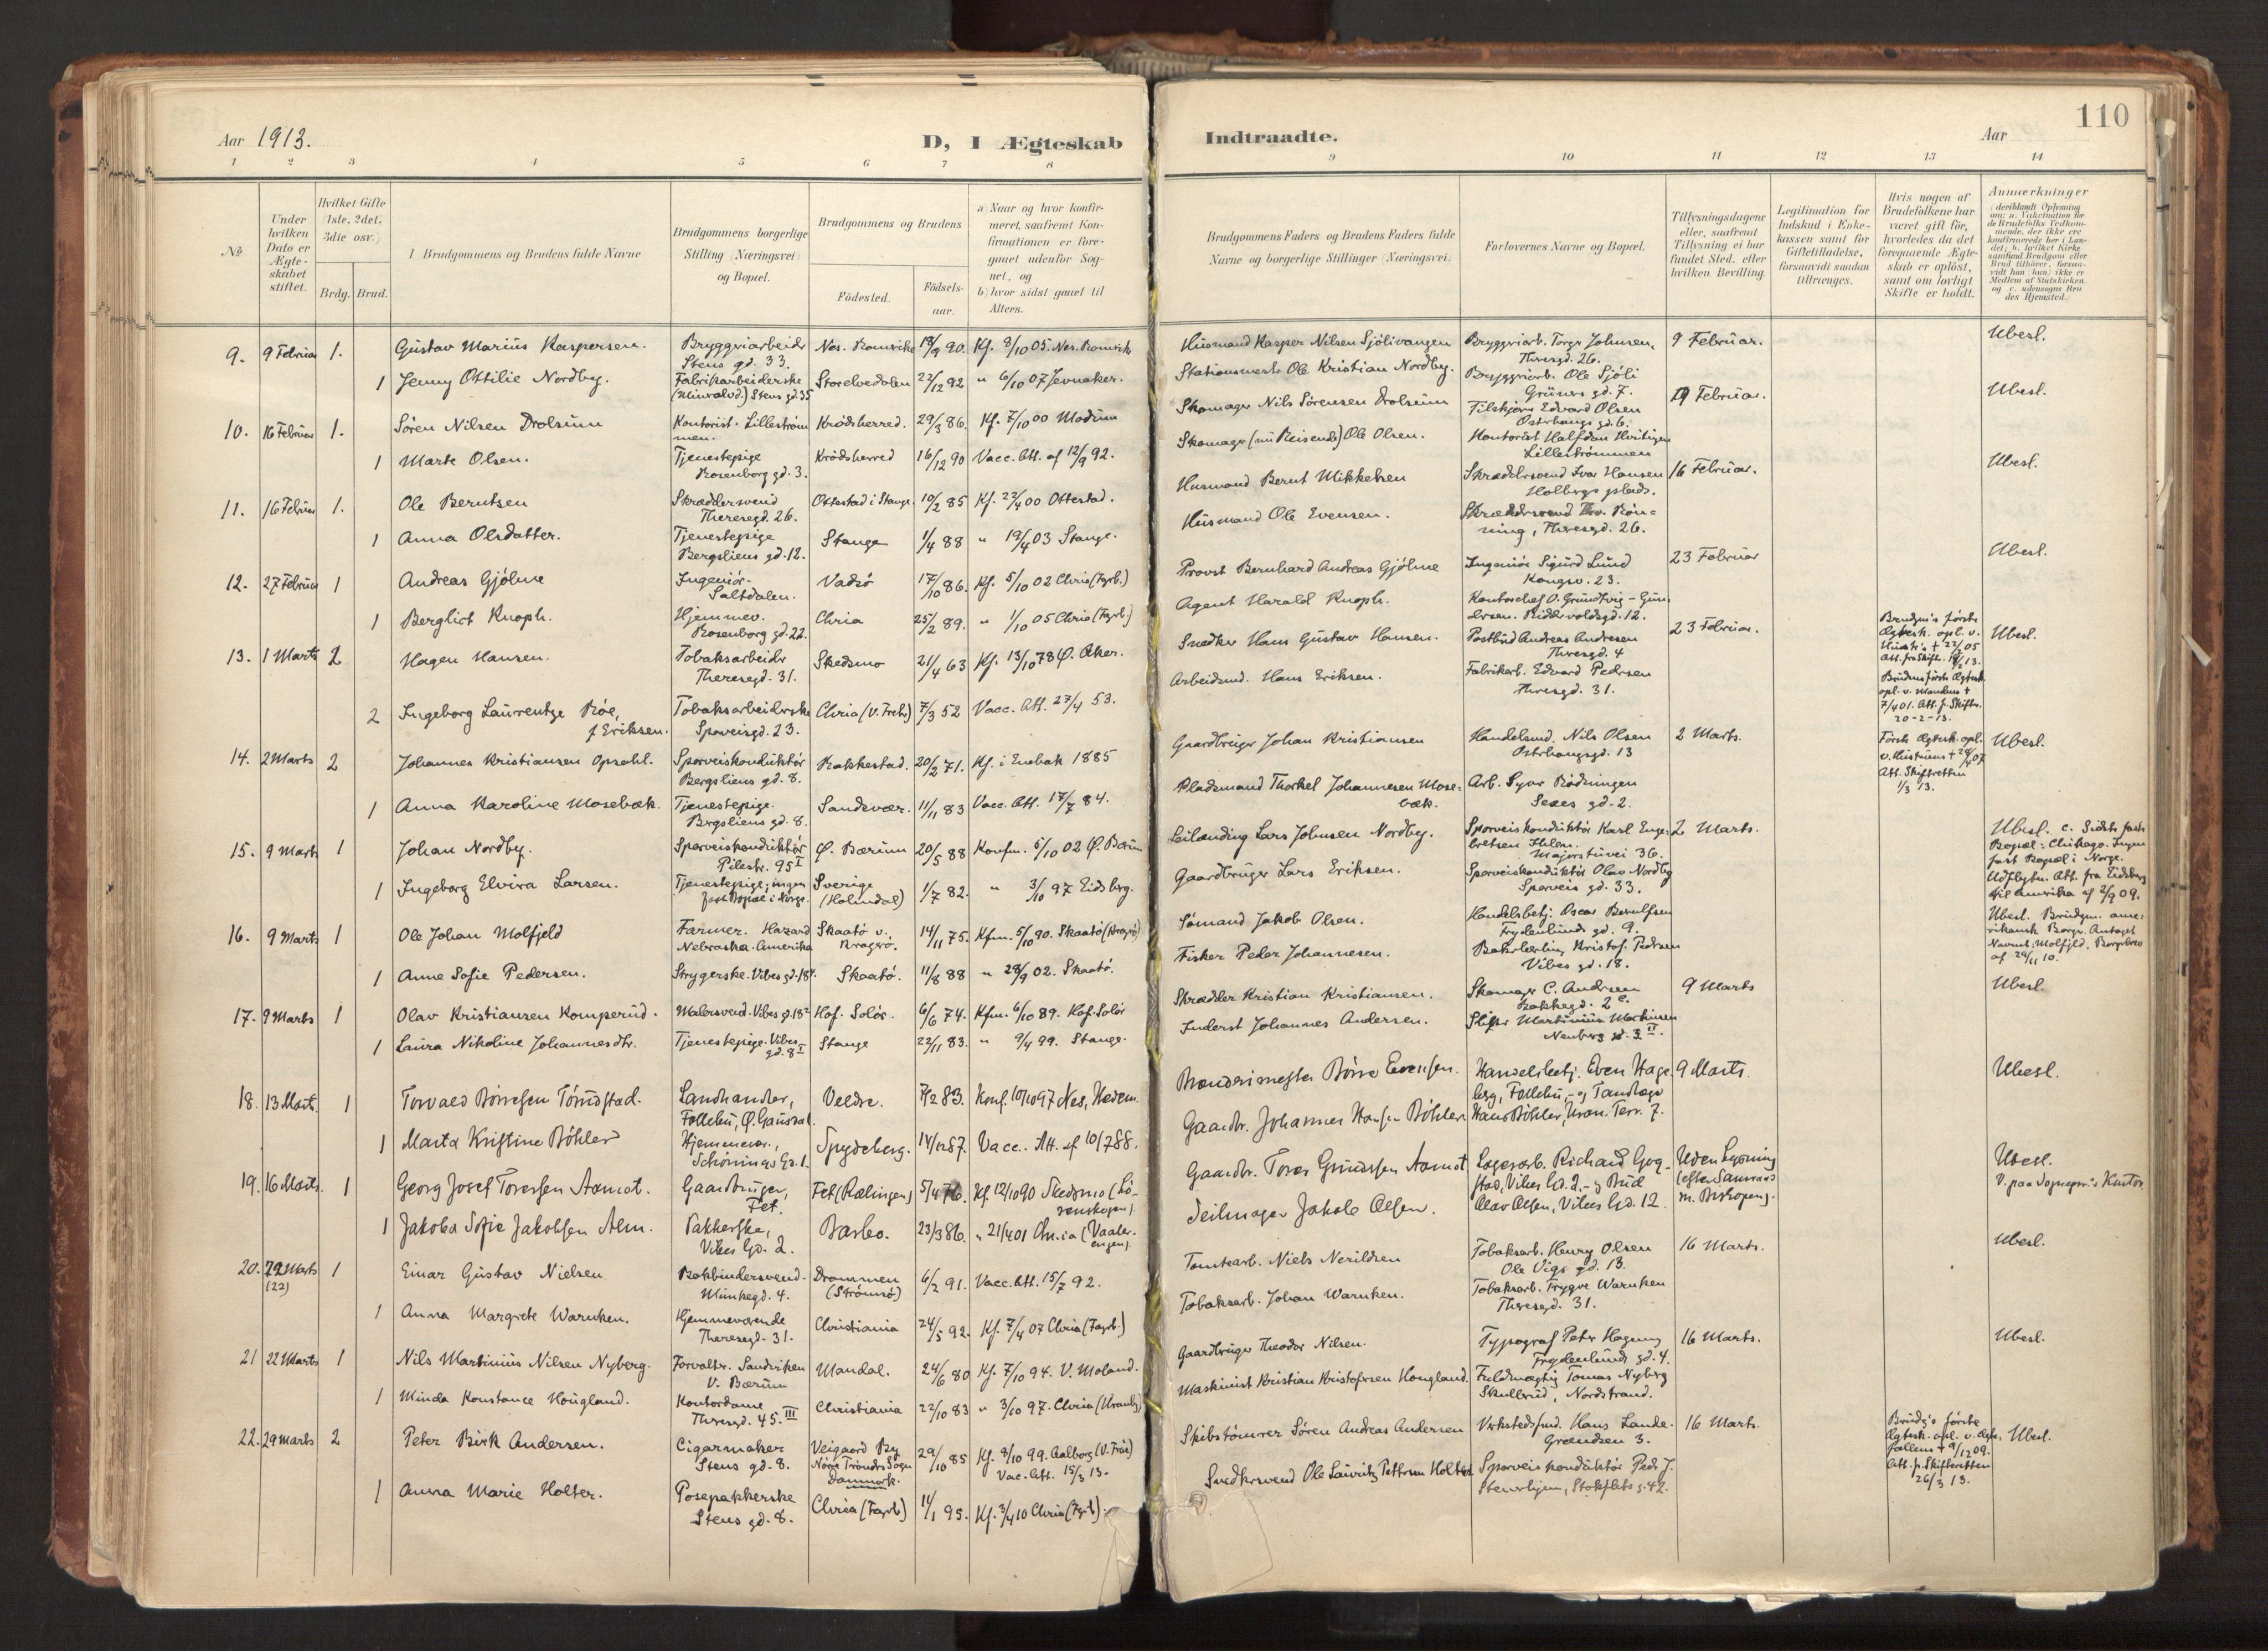 110
Aar 1913.
D, I Ægteskab Indtraadte.
Aar
1 2 3 4 5 6 7 8 9 10 11 12 13 14
№
Under hvilken Dato er Ægteskabet stiftet.
Hvilket Gifte (1ste, 2det, 3die osv.)
Brdg. Brud.
I Brudgommens og Brudens fulde Navne
Brudgommens borgerlige Stilling (Næringsvei) og Bopæl.
Brudgommens og Brudens
Födested.
Födselsaar.
a) Naar og hvor konfirmeret, saafremt Konfirmationen er foregaaet udenfor Sognet, og
b) hvor sidst gaaet til Alters.
Brudgommens Faders og Brudens Faders fulde Navne og borgerlige Stillinger (Næringsvei)
Forlovernes Navne og Bopæl.
Tillysningsdagene eller, saafremt Tillysning ei har fundet Sted, efter hvilken Bevilling.
Legitimation for Indskud i Enkekassen samt for Giftetilladelse, forsaavidt saadan tiltrænges.
Hvis nogen af Brudefolkene har været gift för, hvorledes da det foregaaende Ægteskab er oplöst, samt om lovligt Skifte er holdt.
Anmærkninger
9. 9 Februar 1. Gustav Marius Kaspersen. Bryggeriarbeider Stens gd. 33. Nes. Romerike 18/9 90. Kf. 8/10 05. Nes. Romerik Husmand Kasper Nilsen Sjölivangen Bryggeriarb. Torger Johnsen, Theresgd. 26. 9 Februar. Ubesl.
1 Jenny Ottilie Nordby. Fabrikarbeiderske (Mineralvd.) Stens gd. 35 Storelvedalen 22/12 92 " 6/10 07 Jevnaker. Stationsmester Ole Kristian Nordby. Bryggeriarb. Ole Sjöli Grüners gd. 7.
10. 16 Februar 1. Sören Nilsen Drolsum Kontorist. Lilleströmmen. Krödsherred. 29/3 86. Kf. 7/10 00 Modum Skomager Nils Sörensen Drolsum Tilskjærer Edvard Olsen Osterhaugs gd. 6. 9 Februar. Ubesl.
1 Marte Olsen. Tjenestepige Rosenborg gd. 3. Krödsherred 16/12 90 Vacc. Att. af 12/9 92. Skomager (nu Reisende) Ole Olsen. Kontorist Halfdan Lilleströmmen
11. 16 Februar 1. Ole Berntsen Skræddersvend Theresegd. 26. Ottestad i Stange. 10/2 85 Kf. 22/4 00 Ottestad. Husmand Bernt Mikkelsen Skræddersvend Ivar Hansen Holbergs plads. 16 Februar. Ubesl.
1 Anna Olsdatter. Tjenestepige Bergsliens gd. 12. Stange 1/4 88 " 19/4 03 Stange. Husmand Ole Evensen. Skræddersvend Thv. Rönning, Theresgd. 26.
12. 27 Februar 1 Andreas Gjölme Ingeniör. Saltdalen. Vadsö 17/10 86. Kf. 5/10 02 Chria (Fagrb.) Provst Bernhard Andreas Gjölme Ingeniör Sigurd Lund Kongsv. 23. 23 Februar Ubesl.
1 Bergliot Knoph. Hjemmev. Rosenborg gd. 22. Chria 25/2 89. " 1/10 05 Chria (Fagrb.) Agent Harald Knoph. Kontorchef O. Grundtvig-Gundersen. Riddervoldsgd. 12.
13. 1 Marts 2 Hagen Hansen. Tobaksarbeider Theresegd. 31. Skedsmo 21/4 63 Kf. 13/10 78 Ö. Aker. Snedker Hans Gustav Hansen. Postbud Andreas Andresen Theresgd. 4 23 Februar. Brudgm's förste Ægtesk. opl. v. Hustr's + 22/1 05 Att. fra Skifter. Ubesl.
2 Ingeborg Laurentze Röe, f. Eriksen. Tobaksarbeiderske Sporveisgd. 23. Chria (V. Frels) 7/3 52 Vacc. Att. 27/4 53. Arbeidsmd. Hans Eriksen. Fabrikarb. Edvard Pedersen Theresgd. 31. Brudens förste Ægtesk. opl. v. Mandens + 7/4 01. Att. f. Skiftr. 20-2-13.
14. 2 Marts 2 Johannes Kristiansen Opsahl. Sporveiskonduktör Bergsliens gd. 8. Rakkestad. 20/2 71. Kf. i Enebak 1885 Gaardbruger Johan Kristiansen Handelsmd. Nils Olsen Osterhaugsgd. 13 2 Marts. Förste Ægtesk. opl. v. Hustruens + Att. Skifteretten 1/3 13. Ubesl.
1 Anna Karoline Mosebæk. Tjenestepige. Bergsliens gd. 8. Sandsvær. 11/11 83 Vacc. Att. 17/7 84. Pladsmand Thorkel Johannesen Mosebæk. Arb. Syver Rödningen Sexes gd. 2.
15. 9 Marts 1 Johan Nordby. Sporveiskonduktör Pilestr. 95 I Ö. Bærum 20/5 88 Konfm. 5/10 02 Ö. Bærum Leilænding Lars Johnsen Nordby. Sporveiskonduktör Karl Engebretsen Majorstuvei 36. 2 Marts. Ubesl. c. Sidste faste Bopæl: Chikago. Ingen fast Bopæl i Norge. Udflytn. Att. fra Eidsberg til Amerika af 2/9 09.
1 Ingeborg Elvira Larsen. Tjenestepige; ingen fast Bopæl i Norge. Sverige (Holmdal) 1/7 82. " 3/10 97 Eidsberg. Gaardbruger Lars Eriksen. Sporveiskonduktör Olav Nordby Sporveis gd. 33.
16. 9 Marts 1 Ole Johan Molfjeld Farmer. Hazard Nebraska. Amerika Skaatö v. Kragerö. 14/11 75. Kfm. 5/10 90. Skaatö (Kragerö) Sömand Jakob Olsen. Handelsbetj. Oscar Frydenlunds gd. 9. Ubesl. Brudgm. amerikansk Borger. Antaget Navnet: Molfjeld. Borgerbrev af 29/11 10.
1 Anne Sofie Pedersen. Strygerske. Vibes gd. 18 Skaatö. 11/8 88 " 28/9 02. Skaatö. Fisker Peder Johannesen. Kristof. Pedersen Vibes gd. 18.
17. 9 Marts 1 Olav Kristiansen Komperud. Malersvend. Vibes gd. 18 Hof. Solör. 6/6 74. Kfm. 6/10 89. Hof. Solör Skrædder Kristian Kristiansen. Skomager C. Andersen Bakkegd. 2 9 Marts Ubesl.
1 Laura Nikoline Johannesdtr. Tjenestepige. Vibes gd. 8 I Stange 22/11 83. " 9/4 99. Stange. Inderst Johannes Andersen. Sliper Martinius Martinsen Neuberg gd. 3 II.
18. 13 Marts. 1 Torvald Börresen Tömdstad. Landhandler, Follebu, Ö. Gausdal. Veldre. 7/2 83. Konf. 10/10 97 Nes, Hedem. Brænderimester Börre Evensen. Handelsbetj. Even Hageberg, Follebu, og Tandlæge Hans Böhler, Uran. Terr. 7. 9 Marts. Ubesl.
1 Marta Kristine Böhler Hjemmevær., Schönings Gd. 1. Spydeberg. 14/12 87. Vacc. Att. af 10/7 88. Gaardbr. Johannes Hansen Böhler
19. 16 Marts. 1 Georg Josef Toresen Aamot. Gaardbruger, Fet. Fet (Rælingen) 5/4 76. Kf. 12/10 90 Skedsmo (Lörenskogen). Gaardbr. Tores Gundersen Aamot Lagerarb. Richard Gogstad, Vibes Gd. 2, og Bud Olav Olsen, Vibes Gd. 12. Uden Lysning (efter Samraad m. Biskopen). Ubesl. V. paa Sognepr's Kontor
1 Jakoba Sofie Jakobsen Alm. Pakkerske, Vibes Gd. 2. Barbo. 23/3 86. " 21/4 01 Chr.ia (Vaalerengen). Seilmager Jakob Olsen.
20. 22 Marts (22) 1 Einar Gustav Nielsen Bokbindersvend. Munkegd. 4. Drammen (Strömsö) 6/2 91. Vacc. Att. 15/7 92. Tomtearb. Niels Nerildsen Tobaksarb. Henry Olsen Ole Vigs gd. 13. 16 Marts. Ubesl.
1 Anna Margrete Warnken. Hjemmeværende Theresegd. 31. Christiania 24/5 92. Kf. 7/4 07 Chria (Fagrb.) Tobaksarb. Johan Warnken. Tobaksarb. Trygve Warnken Theresegd. 31.
21 22 Marts 1 Nils Martinius Nilsen Nyberg. Forvalter. Sandviken V. Bærum Mandal. 24/6 80 Kf. 7/10 94. V. Moland. Gaardbruger Theodor Nilsen. Typograf Peter Hagung Frydenlunds gd. 4. 16 Marts. Ubesl.
1 Minda Konstance Hougland. Kontordame Theresgd. 45. III Christiania 22/10 83 " 3/10 97. Chria (Uranbg) Maskinist Kristian Kristofersen Hougland. Fuldmægtig Tomas Nyberg Skulbrud, Nordstrand.
22. 29 Marts 2 Peter Birk Andersen. Cigarmaker Stens gd. 8. Veigaard By Nörre Tranders Sogn Danmark. 29/10 85 Kf. 8/10 99. Aalborg (V. Frue) Vac. Att. 15/3 13. Skibstömrer Sören Andreas Andersen Verkstedsfmd. Hans Lande. Grændsen 3. 16 Marts. Brudg's förste Ægtesk. opl. v. Ægtefællens + 9/12 09. Att. fr. Skifteretten 26/3 13. Ubesl.
1 Anna Marie Holter. Posepakkerske Stens gd. 8. Chria (Fagrb) 14/1 95. Kf. 3/4 10 Chria (Fgrb). Snedkersvend Ole Lauritz Pettersen Holter Sporveiskonduktör Peder J. Stenersgd. 42.